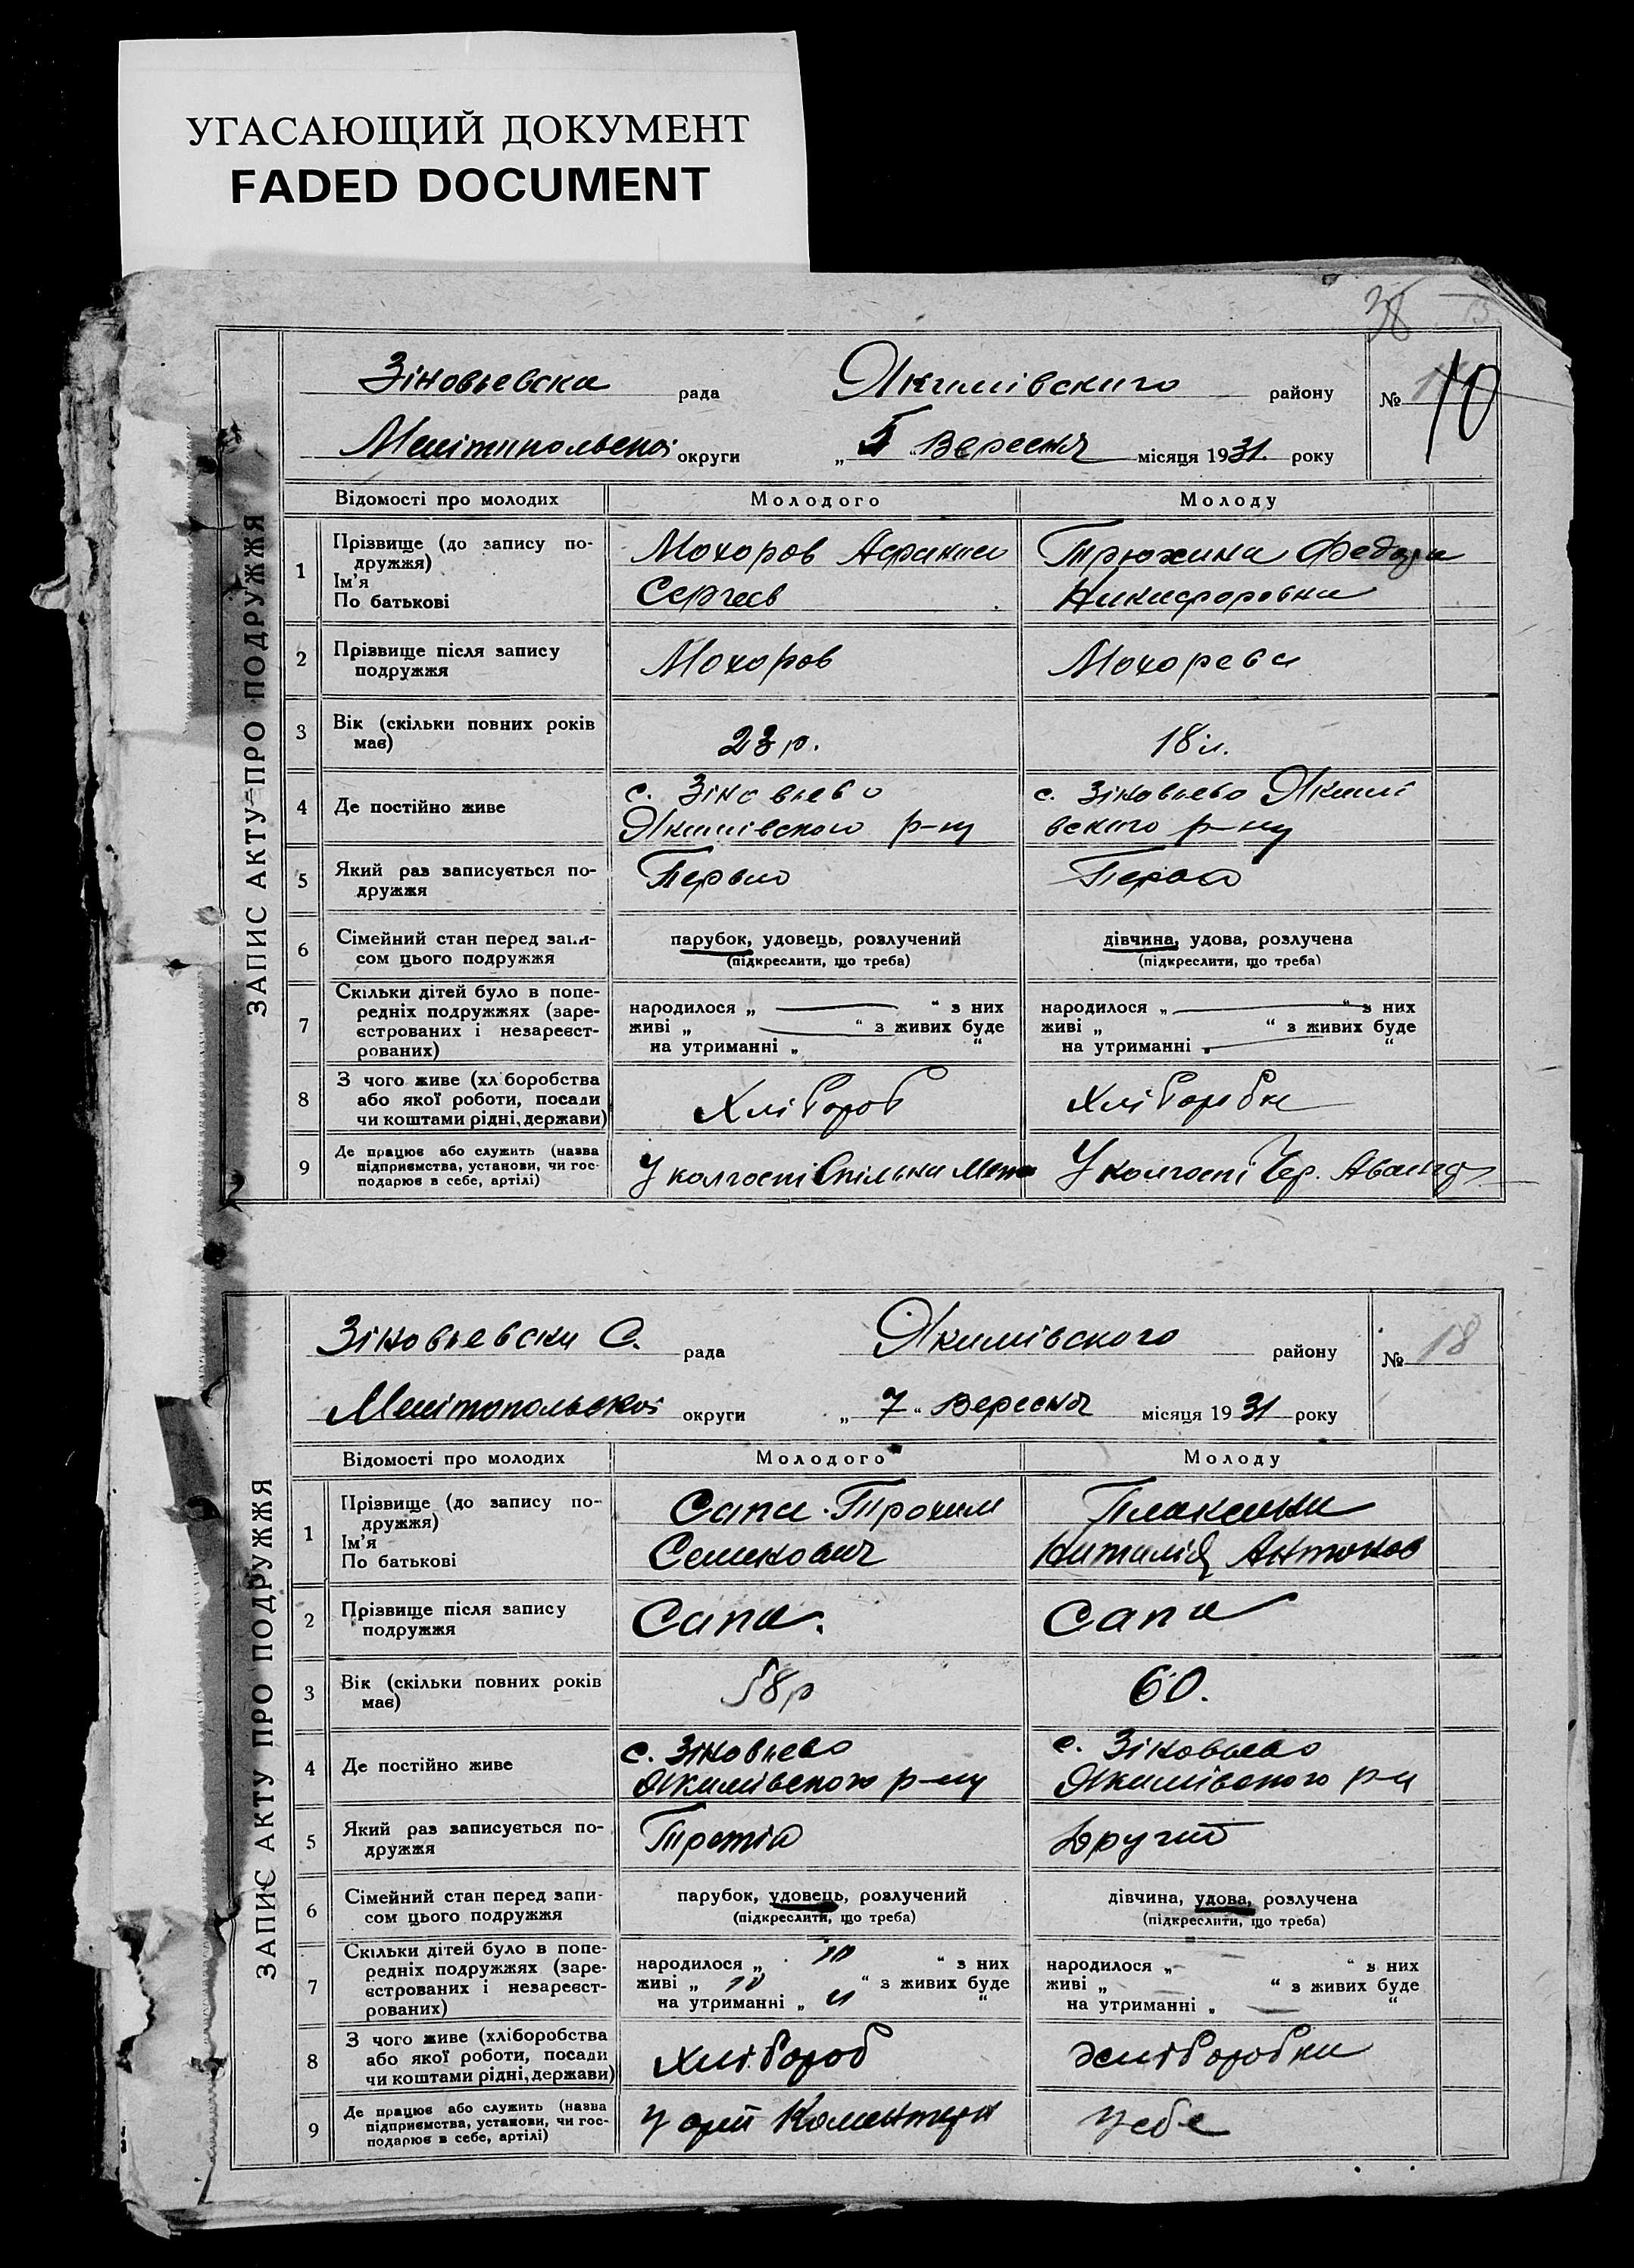 УГАСАЮЩИЙ ДОКУМЕНТ
FADED DOCUMENT
38
ЗАПИС АКТУ ПРО ПОДРУЖЖЯ
Зіновьевска рада Якимівского району № 10
Мелітипольської округи „5“ Вересня місяця 1931 року
Відомості про молодих Молодого Молоду
1 Прізвище (до запису по-
дружжя)
Ім'я
По батькові
Мохоров Афанаси
Сергеев
Трюхина Федора
Никифоровна
2 Прізвище після запису
подружжя
Мохоров
Мохорева
3 Вік (скільки повних років
має)
23 р.
18 л.
4 Де постійно живе
с. Зіновьево
Якимівского р-ну
с. Зіновьево Якимі
вского р-ну
5 Який раз записується по-
дружжя
6 Сімейний стан перед запи-
сом цього подружжя
парубок, удовець, розлучений
(підкреслити, що треба)
дівчина, удова, розлучена
(підкреслити, що треба)
7 Скільки дітей було в попе-
редніх подружжях (заре-
єстрованих і незареєст-
рованих)
народилося „ “ з них
живі „ “ з живих буде
на утриманні „ “
народилося „ “ з них
живі „ “ з живих буде
на утриманні „ “
8 З чого живе (хл боробства
або якої роботи, посади
чи коштами рідні, держави)
Хлібороб
Хліборобка
9 Де працює або служить (назва
підприємства, установи, чи гос-
подарює в себе, артілі)
У колгоспі Спільна Мета
У колгоспі Чер. Авангард
ЗАПИС АКТУ ПРО ПОДРУЖЖЯ
Зіновьевска С. рада Якимівского району № 18
Мелітопольської округи „7“ Вересня місяця 1931 року
Відомості про молодих Молодого Молоду
1 Прізвище (до запису по-
дружжя)
Ім'я
По батькові
Сапа Трохим
Семенович
Плаксина
Наталія Антонов
2 Прізвище після запису
подружжя
Сапа.
Сапа
3 Вік (скільки повних років
має)
58 р
60.
4 Де постійно живе
с. Зіновьево
Якимівского р-ну
с. Зіновьево
Якимівского р-н
5 Який раз записується по-
дружжя
Третій
Другий
6 Сімейний стан перед запи-
сом цього подружжя
парубок, удовець, розлучений
(підкреслити, що треба)
дівчина, удова, розлучена
(підкреслити, що треба)
7 Скільки дітей було в попе-
редніх подружжях (заре-
єстрованих і незареєст-
рованих)
народилося „ 10 “ з них
живі „ 10 “ з живих буде
на утриманні „ “
народилося „ - “ з них
живі „ “ з живих буде
на утриманні „ — “
8 З чого живе (хліборобства
або якої роботи, посади
чи коштами рідні, держави)
Хлібороб
Хліборобка
9 Де працює або служить (назва
підприємства, установи, чи гос-
подарює в себе, артілі)
У себе